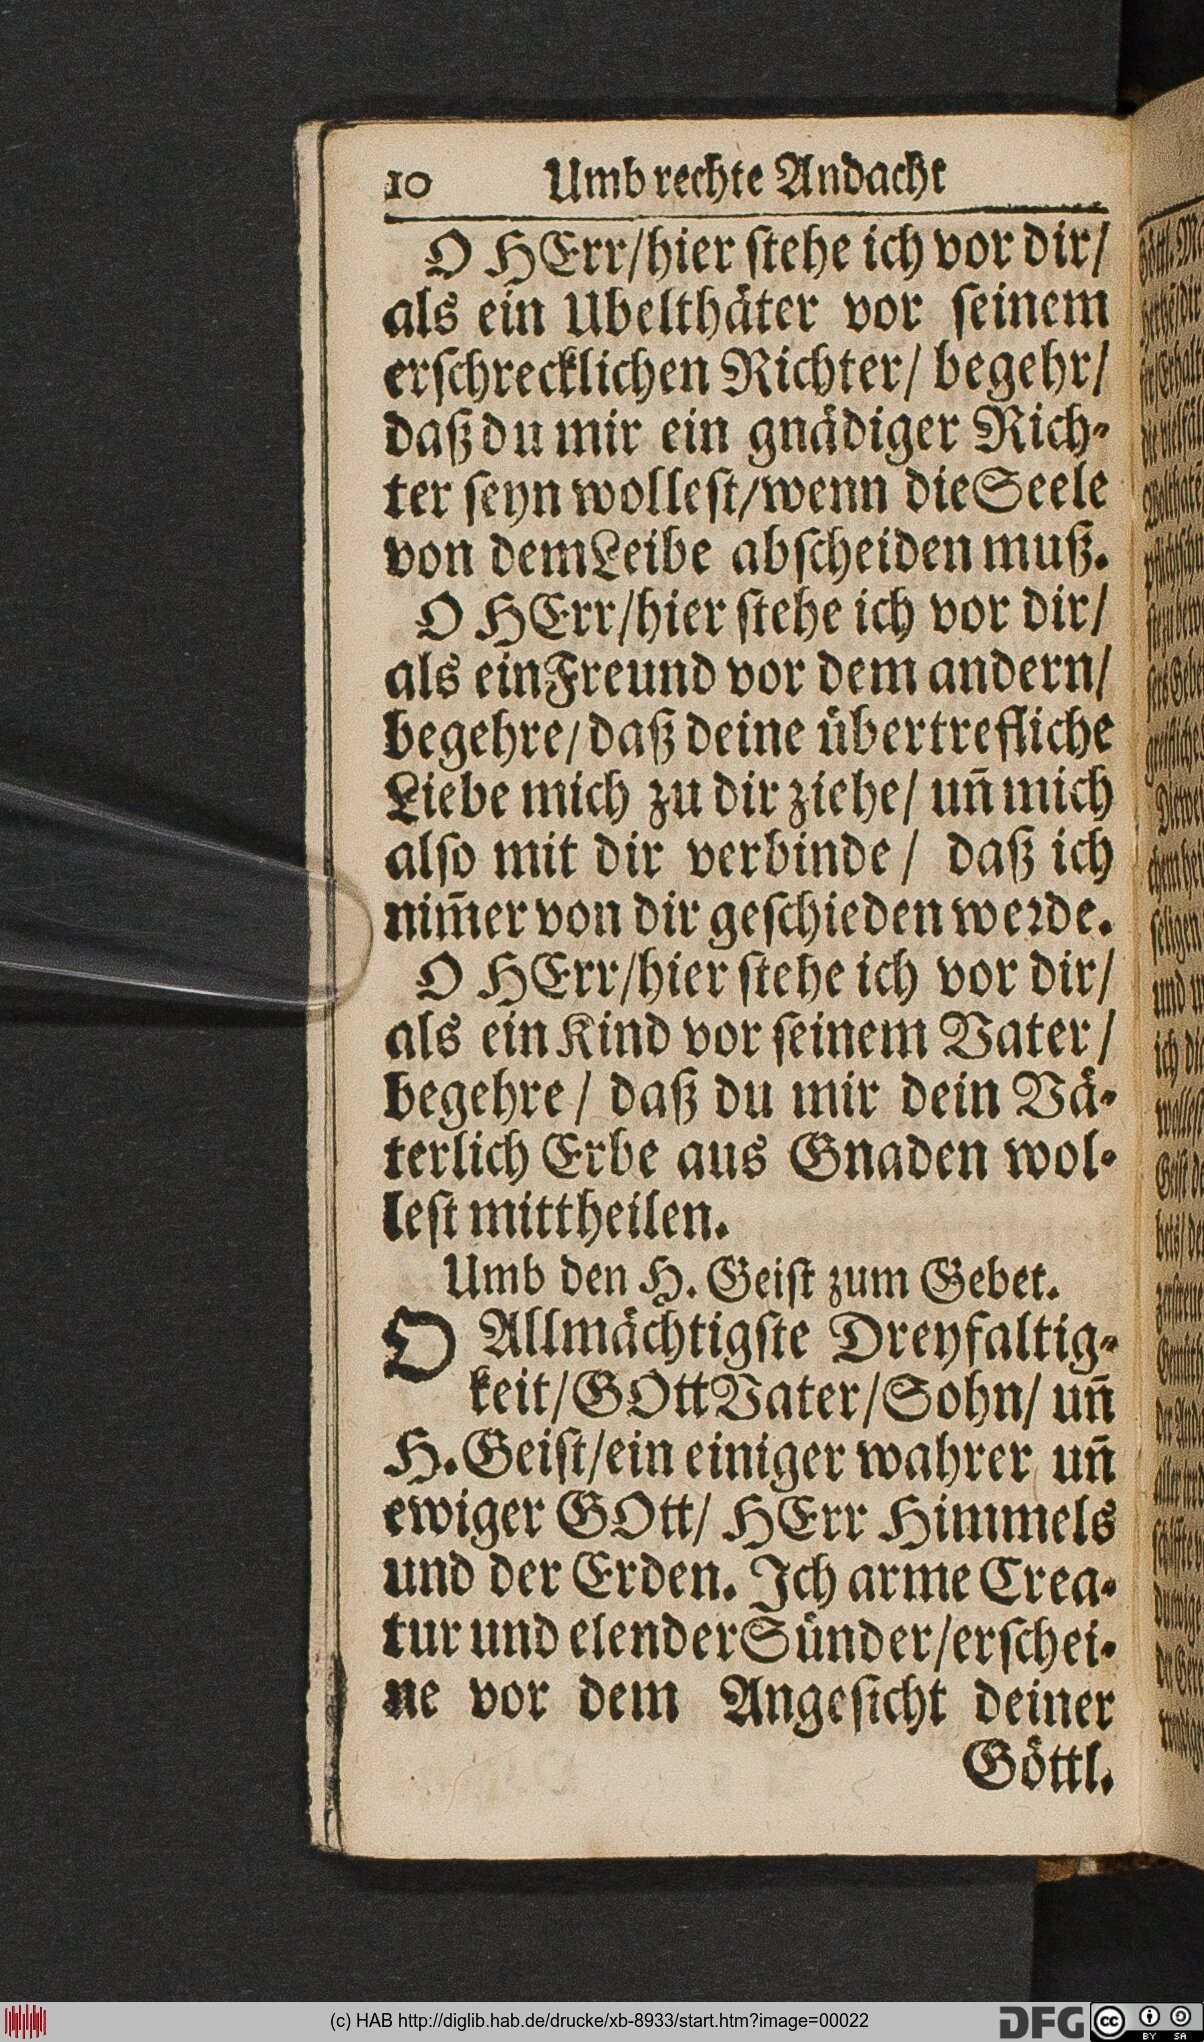 10 Umb rechte Andacht
O HErr/hier ſtehe ich vor dir/
als ein Ubelthäter vor ſeinem
erſchrecklichen Richter/ begehr/
daß du mir ein gnädiger Rich-
ter ſeyn wolleſt/wenn die Seele
von dem Leibe abſcheiden muß.
O HErr/hier ſtehe ich vor dir/
als ein Freund vor dem andern/
begehre/daß deine übertrefliche
Liebe mich zu dir ziehe/ uñ mich
alſo mit dir verbinde/ daß ich
nim̃er von dir geſchieden weꝛde.
O HErr/hier ſtehe ich vor dir/
als ein Kind vor ſeinem Vater/
begehre/ daß du mir dein Vä-
terlich Erbe aus Gnaden wol-
leſt mittheilen.
Umb den H. Geiſt zum Gebet.
O Allmächtigſte Dreyfaltig-
keit/GOtt Vater/Sohn/ uñ
H. Geiſt/ein einiger wahrer uñ
ewiger GOtt/ HErr Himmels
und der Erden. Ich arme Crea-
tur und elender Sünder/erſchei-
ne vor dem Angeſicht deiner
Göttl.
(c) HAB http://diglib.hab.de/drucke/xb-8933/start.htm?image=00022
DFG
cc BY SA